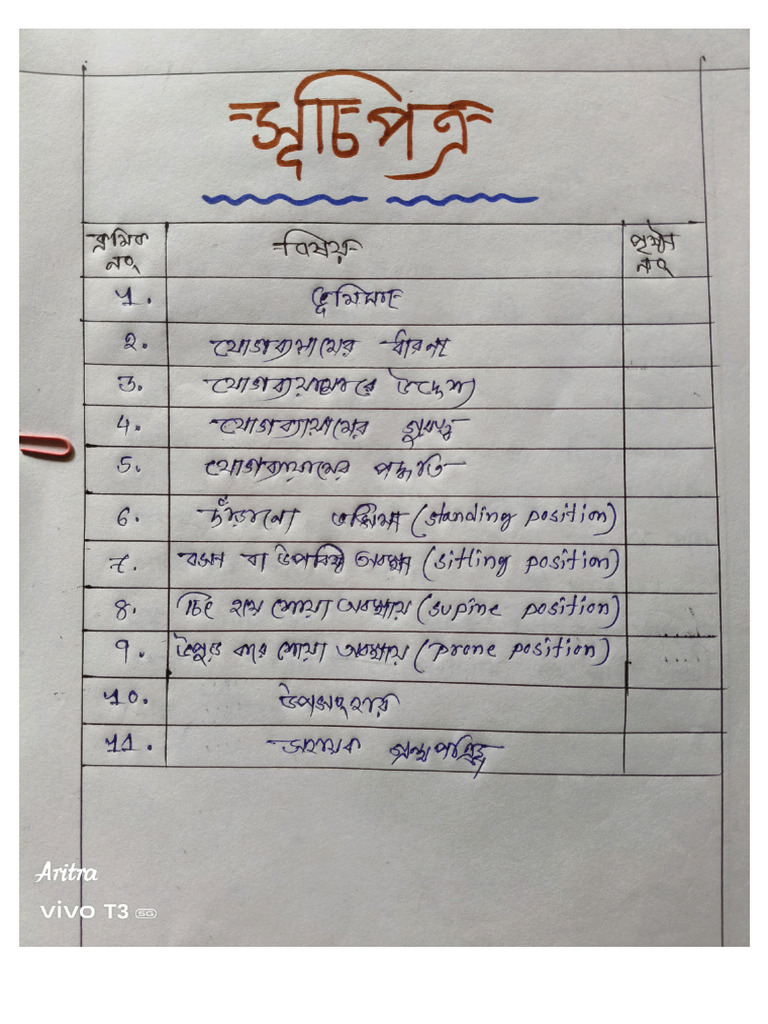 সূচিপত্র
ক্রমিক নং বিষয় পৃষ্ঠা নং
১. ভূমিকা
২. যোগব্যায়ামের ধারনা
৩. যোগব্যায়ামের উদ্দেশ্য
4. যোগব্যায়ামের গুরুত্ব
5. যোগব্যায়ামের পদ্ধতি
6. দাঁড়ানো ভঙ্গিমা (standing position)
7. বসন বা উপবিষ্ট অবস্থা (sitting position)
8. চিৎ হয়ে শোয়া অবস্থায় (supine position)
9. উপুড় করে শোয়া অবস্থায় (prone position)
১০. উপসংহার
১১. সহায়ক গ্রন্থপঞ্জি
Aritra
vivo T3 5G